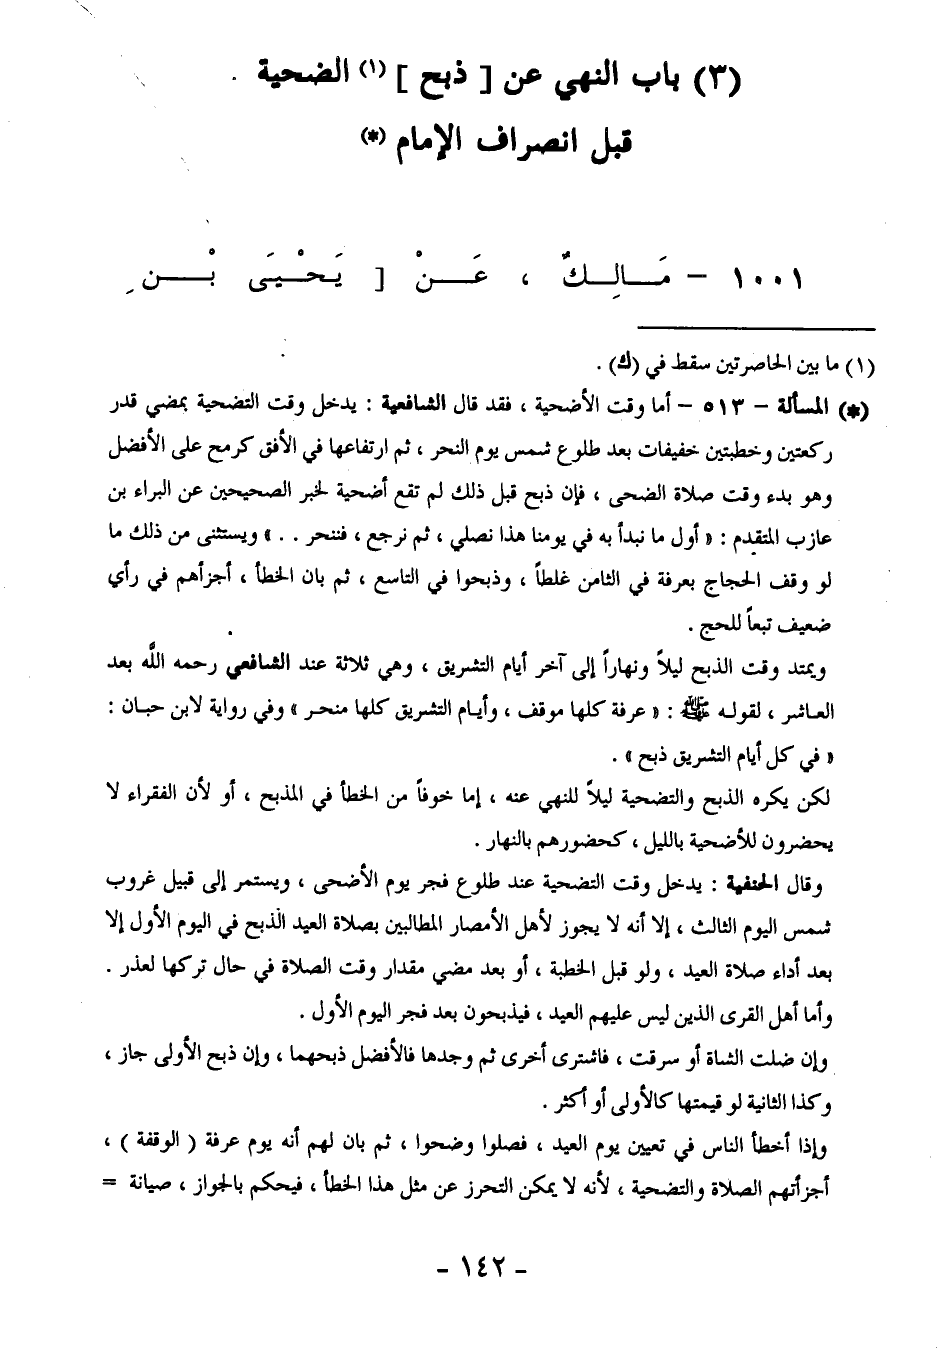 (٣) باب النهي عن [ ذبح ] (١) الضحية
قبل انصراف الإمام (*)
١٠٠١ – مَـالِـكٌ ، عَـنْ [ يَـحْـيَى بْـنِ
(١) ما بين الحاصرتين سقط في (ك) .
(*) المسألة – ٥١٣ – أما وقت الأضحية ، فقد قال الشافعية : يدخل وقت التضحية بمضي قدر
ركعتين وخطبتين خفيفات بعد طلوع شمس يوم النحر ، ثم ارتفاعها في الأفق كرمح على الأفضل
وهو بدء وقت صلاة الضحى ، فإن ذبح قبل ذلك لم تقع أضحية لخبر الصحيحين عن البراء بن
عازب المتقدم : « أول ما نبدأ به في يومنا هذا نصلي ، ثم نرجع ، فننحر . . » ويستثنى من ذلك ما
لو وقف الحجاج بعرفة في الثامن غلطاً ، وذبحوا في التاسع ، ثم بان الخطأ ، أجزأهم في رأي
ضعيف تبعاً للحج .
ويمتد وقت الذبح ليلاً ونهاراً إلى آخر أيام التشريق ، وهي ثلاثة عند الشافعي رحمه اللَّه بعد
العاشر ، لقوله ﷺ : « عرفة كلها موقف ، وأيام التشريق كلها منحر » وفي رواية لابن حبان :
« في كل أيام التشريق ذبح » .
لكن يكره الذبح والتضحية ليلاً للنهي عنه ، إما خوفاً من الخطأ في المذبح ، أو لأن الفقراء لا
يحضرون للأضحية بالليل ، كحضورهم بالنهار .
وقال الحنفية : يدخل وقت التضحية عند طلوع فجر يوم الأضحى ، ويستمر إلى قبيل غروب
شمس اليوم الثالث ، إلا أنه لا يجوز لأهل الأمصار المطالبين بصلاة العيد الذبح في اليوم الأول إلا
بعد أداء صلاة العيد ، ولو قبل الخطبة ، أو بعد مضي مقدار وقت الصلاة في حال تركها لعذر .
وأما أهل القرى الذين ليس عليهم العيد ، فيذبحون بعد فجر اليوم الأول .
وإن ضلت الشاة أو سرقت ، فاشترى أخرى ثم وجدها فالأفضل ذبحهما ، وإن ذبح الأولى جاز ،
وكذا الثانية لو قيمتها كالأولى أو أكثر .
وإذا أخطأ الناس في تعيين يوم العيد ، فصلوا وضحوا ، ثم بان لهم أنه يوم عرفة ( الوقفة ) ،
أجزأتهم الصلاة والتضحية ، لأنه لا يمكن التحرز عن مثل هذا الخطأ ، فيحكم بالجواز ، صيانة =
- ١٤٢ -